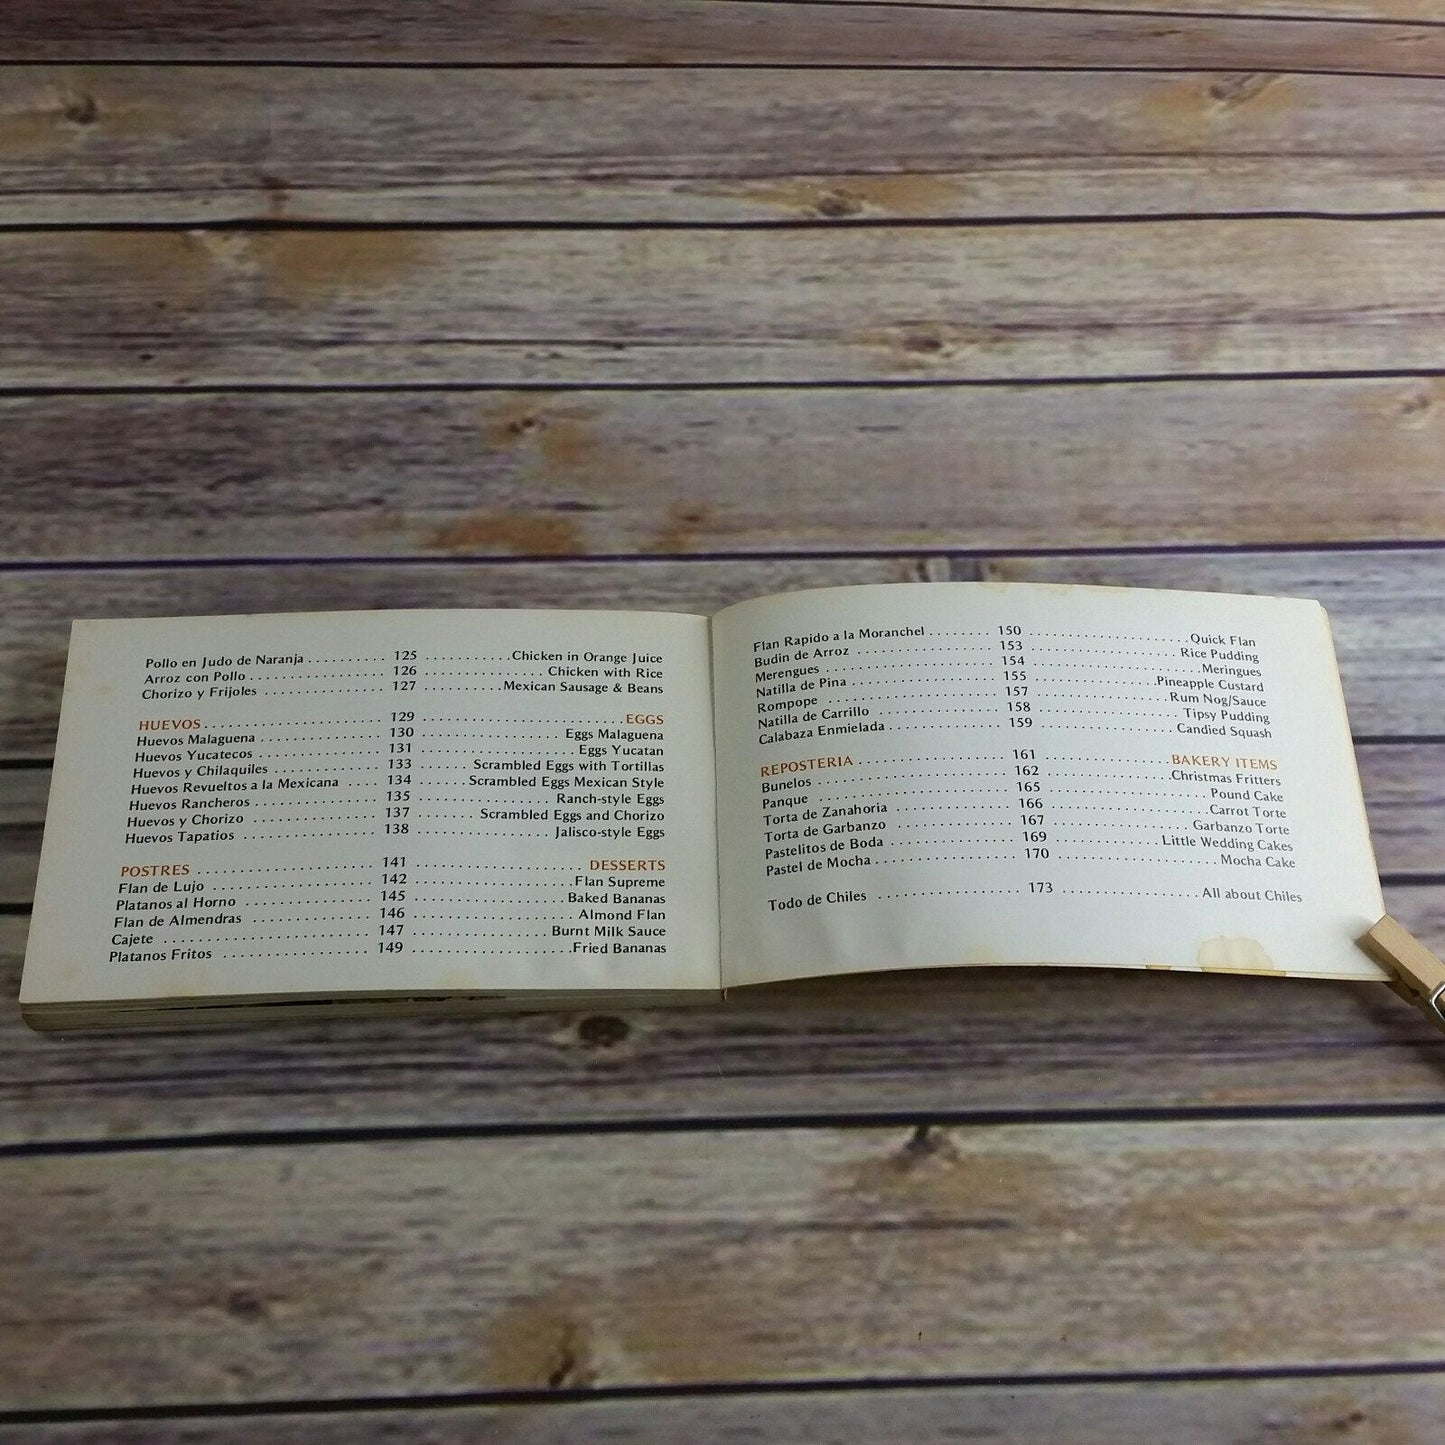 Pollo en Judo de Naranja . . . . . . . . . . 125 . . . . . . . . . . . Chicken in Orange Juice
Arroz con Pollo . . . . . . . . . . . . . . . . . 126 . . . . . . . . . . . . . . . Chicken with Rice
Chorizo y Frijoles . . . . . . . . . . . . . . . 127 . . . . . . . . . . Mexican Sausage & Beans
HUEVOS . . . . . . . . . . . . . . . . . . . . . . 129 . . . . . . . . . . . . . . . . . . . . . . . . . EGGS
Huevos Malaguena . . . . . . . . . . . . . . . 130 . . . . . . . . . . . . . . . . . Eggs Malaguena
Huevos Yucatecos . . . . . . . . . . . . . . . 131 . . . . . . . . . . . . . . . . . . . Eggs Yucatan
Huevos y Chilaquiles . . . . . . . . . . . . . 133 . . . . . . Scrambled Eggs with Tortillas
Huevos Revueltos a la Mexicana . . . . 134 . . . . . . Scrambled Eggs Mexican Style
Huevos Rancheros . . . . . . . . . . . . . . . 135 . . . . . . . . . . . . . . . . Ranch-style Eggs
Huevos y Chorizo . . . . . . . . . . . . . . . 137 . . . . . . . Scrambled Eggs and Chorizo
Huevos Tapatios . . . . . . . . . . . . . . . . 138 . . . . . . . . . . . . . . . Jalisco-style Eggs
POSTRES . . . . . . . . . . . . . . . . . . . . . 141 . . . . . . . . . . . . . . . . . . . . DESSERTS
Flan de Lujo . . . . . . . . . . . . . . . . . . . 142 . . . . . . . . . . . . . . . . . . . Flan Supreme
Platanos al Horno . . . . . . . . . . . . . . . 145 . . . . . . . . . . . . . . . . . . Baked Bananas
Flan de Almendras . . . . . . . . . . . . . . 146 . . . . . . . . . . . . . . . . . . . Almond Flan
Cajete . . . . . . . . . . . . . . . . . . . . . . . 147 . . . . . . . . . . . . . . . . Burnt Milk Sauce
Platanos Fritos . . . . . . . . . . . . . . . . . 149 . . . . . . . . . . . . . . . . . . . Fried Bananas
Flan Rapido a la Moranchel . . . . . . . . 150 . . . . . . . . . . . . . . . . . . . . Quick Flan
Budin de Arroz . . . . . . . . . . . . . . . . . 153 . . . . . . . . . . . . . . . . . . . Rice Pudding
Merengues . . . . . . . . . . . . . . . . . . . . 154 . . . . . . . . . . . . . . . . . . . . . . Meringues
Natilla de Pina . . . . . . . . . . . . . . . . . 155 . . . . . . . . . . . . . . . . Pineapple Custard
Rompope . . . . . . . . . . . . . . . . . . . . . 157 . . . . . . . . . . . . . . . . . Rum Nog/Sauce
Natilla de Carrillo . . . . . . . . . . . . . . . 158 . . . . . . . . . . . . . . . . . . . Tipsy Pudding
Calabaza Enmielada . . . . . . . . . . . . . . 159 . . . . . . . . . . . . . . . . . . Candied Squash
REPOSTERIA . . . . . . . . . . . . . . . . . . 161 . . . . . . . . . . . . . . . . . . BAKERY ITEMS
Bunelos . . . . . . . . . . . . . . . . . . . . . . 162 . . . . . . . . . . . . . . . . Christmas Fritters
Panque . . . . . . . . . . . . . . . . . . . . . . 165 . . . . . . . . . . . . . . . . . . . . Pound Cake
Torta de Zanahoria . . . . . . . . . . . . . . 166 . . . . . . . . . . . . . . . . . . . . Carrot Torte
Torta de Garbanzo . . . . . . . . . . . . . . . 167 . . . . . . . . . . . . . . . . . . Garbanzo Torte
Pastelitos de Boda . . . . . . . . . . . . . . . 169 . . . . . . . . . . . . . . Little Wedding Cakes
Pastel de Mocha . . . . . . . . . . . . . . . . 170 . . . . . . . . . . . . . . . . . . . . Mocha Cake
Todo de Chiles . . . . . . . . . . . . . . . . . 173 . . . . . . . . . . . . . . . . . All about Chiles